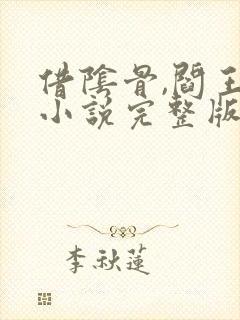 借陰骨,閻王
小說完整版
李秋蓮